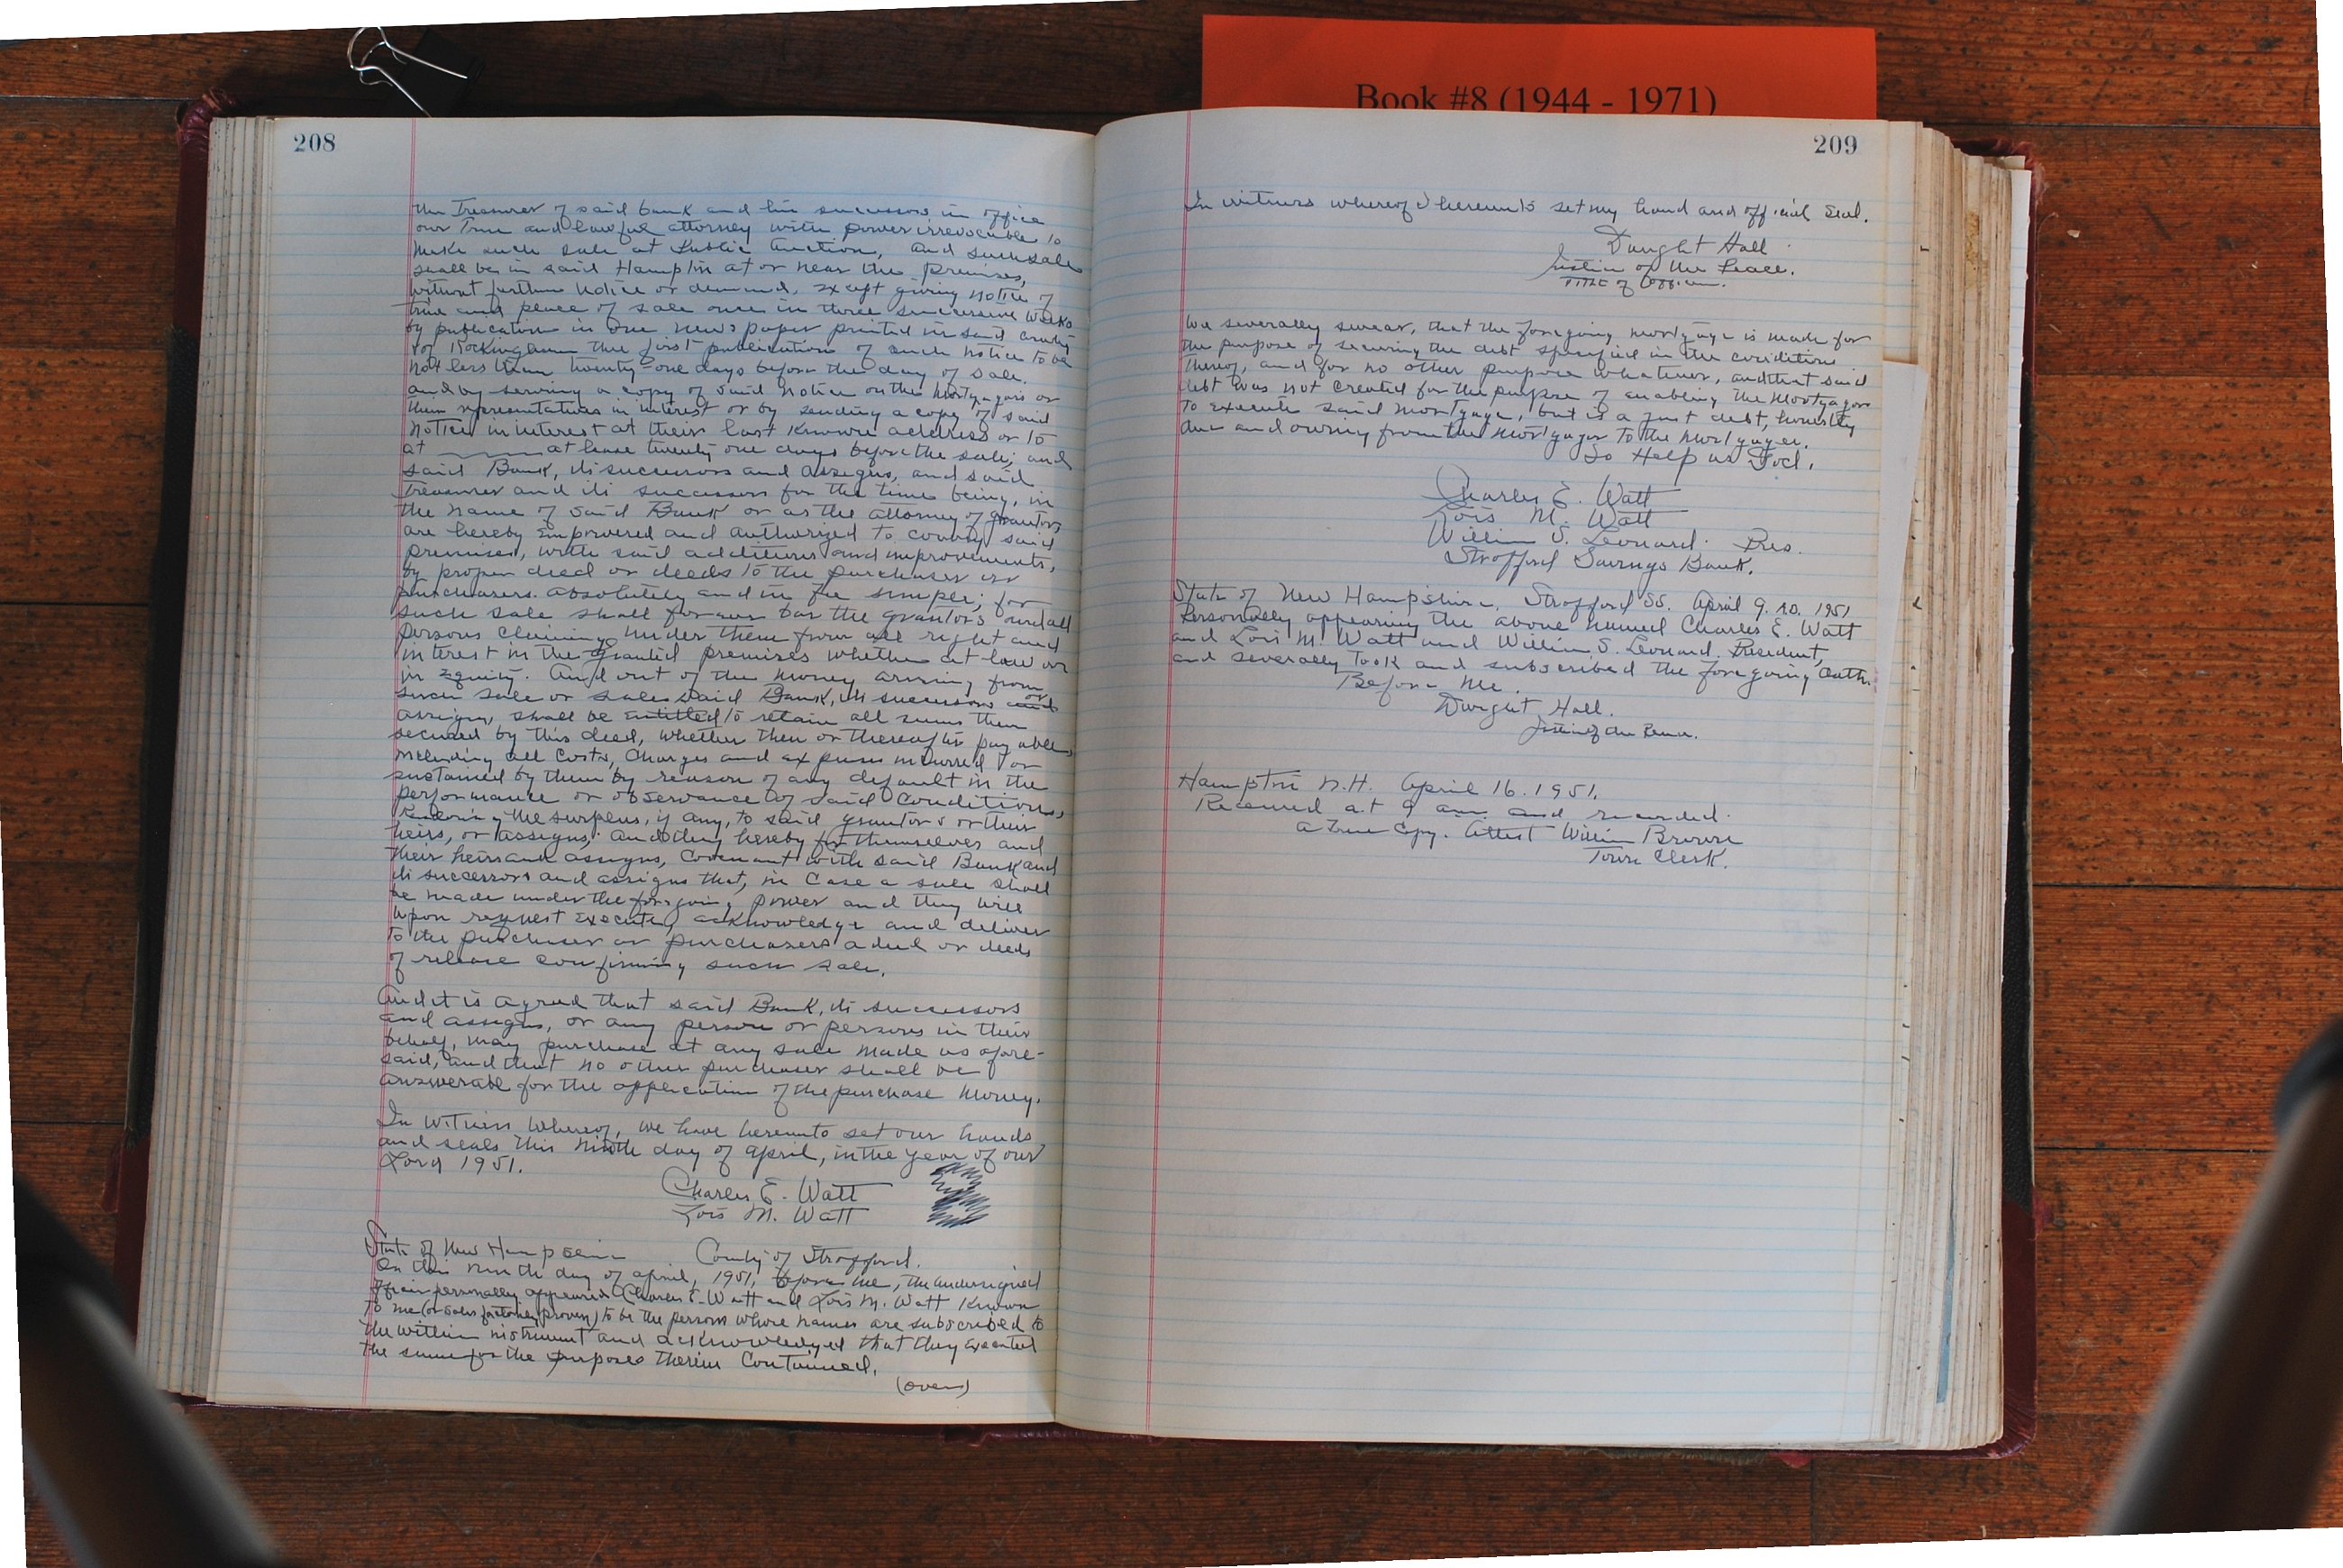 Book #8 (1944 - 1971)
208
the Treasurer of said bank and his successors in office
our True and lawful attorney with power irrevocable to
make such sale at Public Auction, and such sale
shall be in said Hampton at or near the premises,
without further notice or demand, except giving notice of
time and place of sale once in three successive weeks
by publication in one newspaper printed in said county
of Rockingham the first publication of such notice to be
not less than twenty-one days before the day of sale.
and by serving a copy of said notice on the Mortgagors or
their representatives in interest or by sending a copy of said
notice in interest at their last known address or to
at at least twenty one days before the sale; and
said Bank, its successors and assigns, and said
Treasurer and its successors for the time being, in
the name of said Bank or as the attorney of grantors
are hereby Empowered and authorized to convey said
premises, with said additions and improvements,
by proper deed or deeds to the purchaser or
purchasers absolutely and in fee simple; for
such sale shall forever bar the grantors and all
persons claiming under them from all right and
interest in the granted premises whether at law or
in Equity. And out of the money arising from
such sale or sales said Bank, its successors or
assigns, shall be entitled to retain all sums then
secured by this deed, whether then or thereafter payable,
including all Costs, Charges and expenses incurred or
sustained by them by reason of any default in the
performance or observance of said Conditions,
Rendering the surplus, if any, to said grantors or their
heirs, or assigns; and they hereby for themselves and
their heirs and assigns, Covenant with said Bank and
its successors and assigns that, in Case a sale shall
be made under the foregoing power and they will
upon request execute, acknowledge and deliver
to the purchaser or purchasers a deed or deeds
of release confirming such sale.
And it is agreed that said Bank, its successors
and assigns, or any person or persons in their
behalf, may purchase at any sale made as afore-
said, and that no other purchaser shall be
answerable for the application of the purchase money.
In Witness Whereof, we have hereunto set our hands
and seals this ninth day of April, in the year of our
Lord 1951.
Charles E. Watt
Lois M. Watt
State of New Hampshire County of Strafford.
On this ninth day of April, 1951, before me, the undersigned
officer personally appeared Charles E. Watt and Lois M. Watt Known
to me (or satisfactorily proven) to be the persons whose names are subscribed to
the within instrument and acknowledged that they executed
the same for the purposes therein Contained.
(over)
209
In witness whereof I hereunto set my hand and official Seal.
Dwight Hall
Justice of the Peace.
Title of Officer.
We severally swear, that the foregoing mortgage is made for
the purpose of securing the debt specified in the conditions
thereof, and for no other purpose whatever, and that said
debt was not created for the purpose of enabling the Mortgagor
to execute said mortgage, but is a just debt, honestly
due and owing from the mortgagor to the mortgagee.
So Help us God.
Charles E. Watt
Lois M. Watt
William S. Leonard. Pres.
Strafford Savings Bank.
State of New Hampshire, Strafford SS. April 9. A.D. 1951
Personally appearing the above named Charles E. Watt
and Lois M. Watt and William S. Leonard. President,
and severally took and subscribed the foregoing Oath.
Before Me.
Dwight Hall.
Justice of the Peace.
Hampton N.H. April 16. 1951.
Received at 9 am and recorded.
a True Copy. Attest William Brown
Town Clerk.